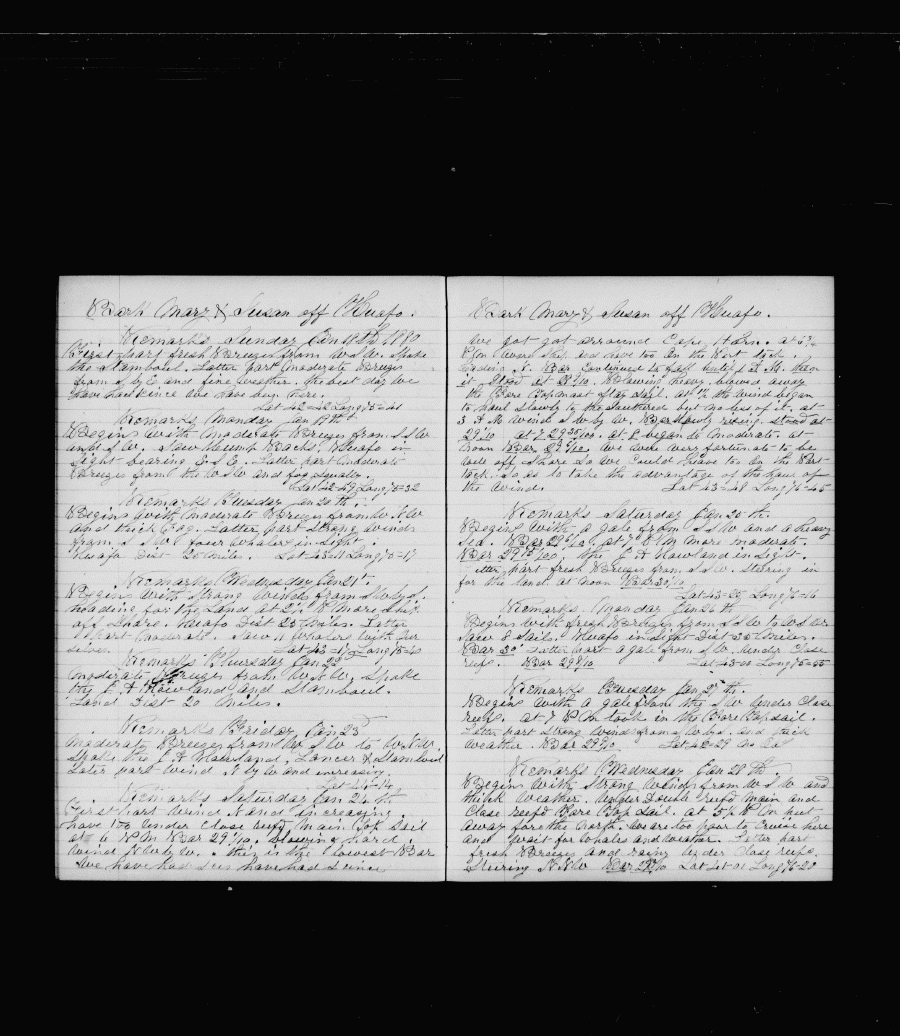 Bark Mary & Susan off Huafo.
Remarks Sunday Jan 18th 1880
First part fresh Breezes from WSW. Spoke
the Stamboul. Latter part moderate Breezes
from S by E and fine weather. the best day we
have had since we have been here.
Lat 42-42 Long 75-41
Remarks Monday Jan 19th
Begins with moderate Breezes from SSW
and SW. Saw Huafo in
Sight bearing E.S.E. Latter part moderate
Breezes from the WSW and foggy
Lat 42-49 Long 75-32
Remarks Tuesday Jan 20th.
Begins with moderate Breezes from WNW
and thick Fog. Latter part strong winds
from SSW four whalers in sight.
Huafo Dist 20 miles. Lat 43-11 Long 75-17
Remarks Wednesday Jan 21st.
Begins with strong winds from SW by S.
heading for the Land at 2½ PM wore Ship
off Shore. Huafo Dist 25 miles. Latter
part moderate. Saw 11 whalers with our
selves. Lat 43-17 Long 75-40
Remarks Thursday Jan 22
moderate Breezes from WNW. Spoke
the J A Howland and Stamboul.
Land Dist 20 miles.
Remarks Friday Jan 23
moderate Breezes from WSW to WNW.
Spoke the J A Howland, Lancer & Stamboul
Later part wind N by W and increasing.
Lat 43-14
Remarks Saturday Jan 24th
First part wind N and increasing
have too under close reefd main Top Sail
at 6 PM Bar 29 /10. blowing hard.
wind N by W. this is the lowest Bar
we have had since
Bark Mary & Susan off Huafo.
we got got arround Cape Horn. at
PM wore Ship and have too on the Port tack.
heading S. Bar continued to fall until 12 M. then
it stood at Blowing heavy. blowed away
the Fore Topmast Stay sail. at ½ the wind began
to haul slowly to the southerd but no less of it. at
3 AM wind SW by W, Bar slowly rising. stood at
29 /10 at 7 at 8 began to moderate. at
noon Bar we were very fortunate to be
well off shore So we could heave too on the Port
tack. So as to take the advantage of the haul of
the wind. Lat 43-48 Long 76-45
Remarks Saturday Jan 25th.
Begins with a gale from SSW and a heavy
Sea. Bar at 7 PM more moderate.
Bar the J A Howland in sight.
Latter part fresh Breezes from SSW. steering in
for the land. at noon Bar 30 /10
Lat 43-25 Long 76-16
Remarks Monday Jan 26th
Begins with fresh Breezes from SSW to WSW
Saw 8 Sail. Huafo in sight Dist 35 miles.
Bar 30 Latter part a gale from SW. under close
reefs. Bar 29 /10 Lat 43-00 Long 75-55
Remarks Tuesday Jan 27th.
Begins with a gale from the SW under close
reefs. at 7 PM took in the Fore Top sail.
Latter part strong winds from SW by S. and thick
weather. Bar 29 /10 Lat 42-29 no
Remarks Wednesday Jan 28th
Begins with strong winds from WSW and
thick weather. under Double reefd main and
close reefd Fore Top Sail. at 5½ PM kept
away for the North. we are too poor to cruise here
and wait for whales and weather. Latter part
fresh Breezes and rainy under close reefs.
Steering NNW Bar /10 Lat 41-01 Long 76-20